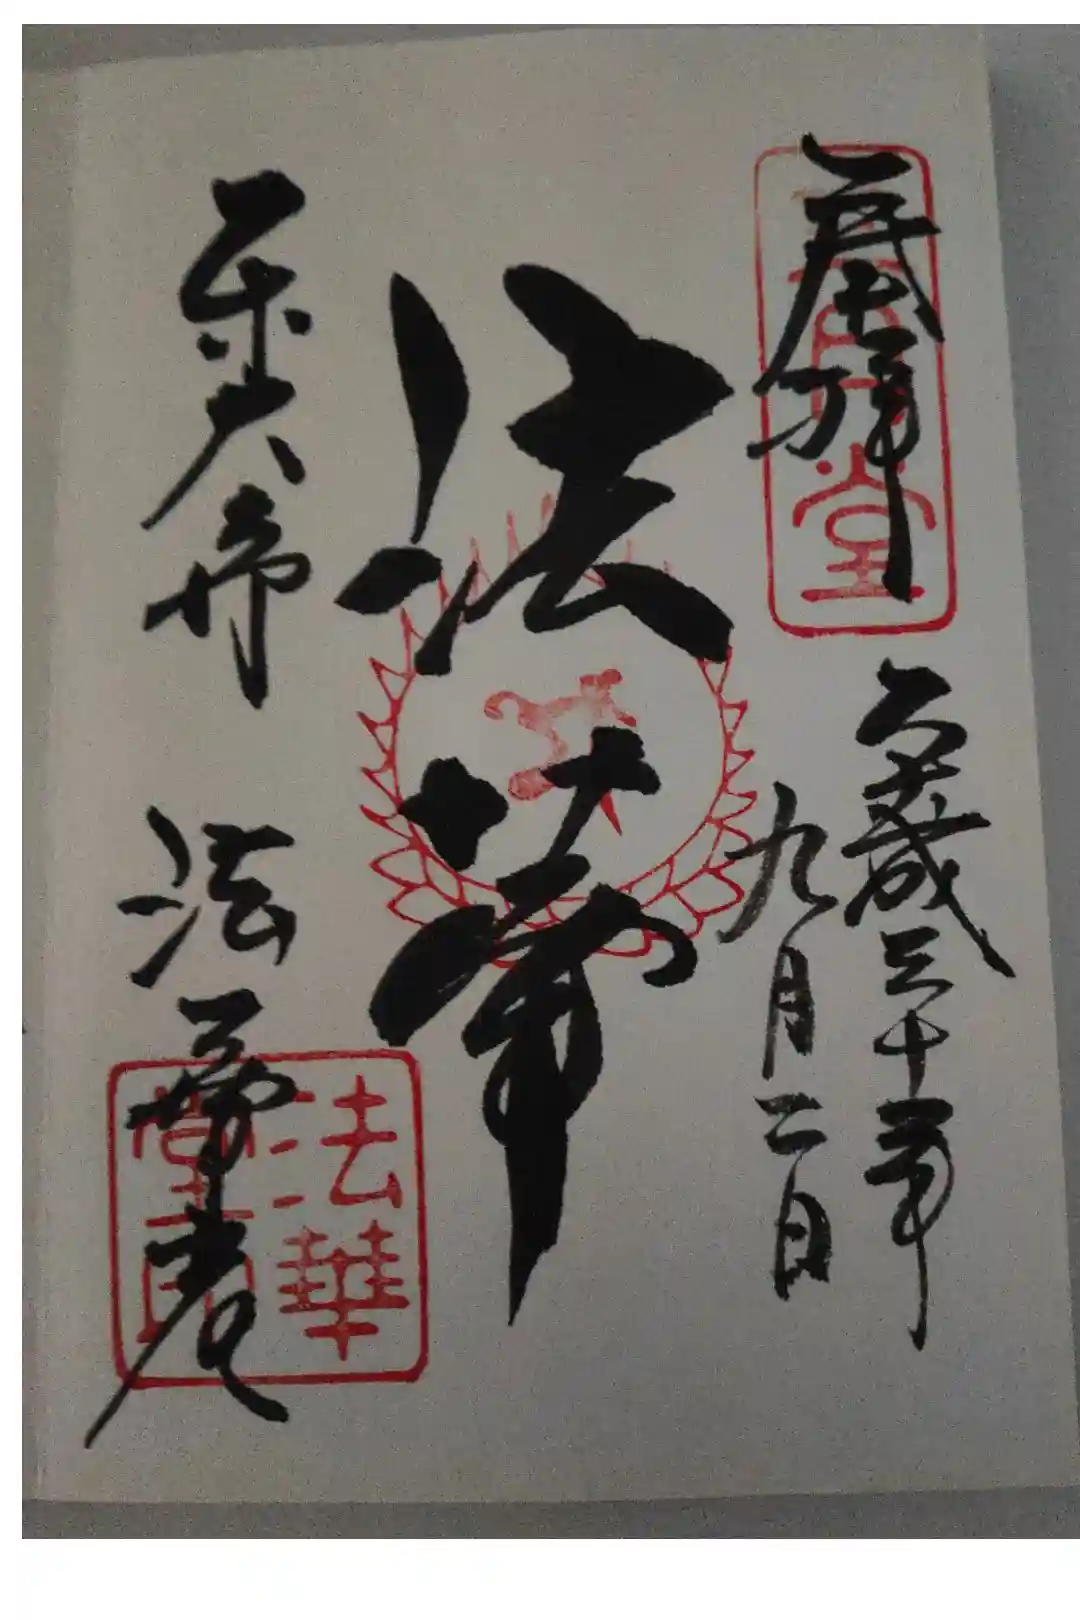 奉拝
平成三十年
九月二日
法華
東大寺
法華堂
法華堂印